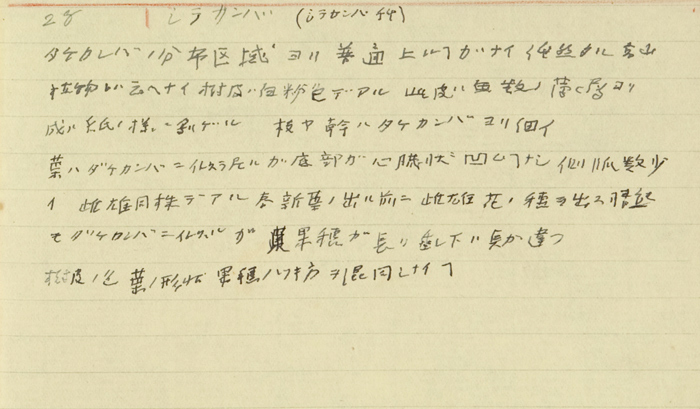 28 シラカンバ (シラカンバ科)
ダケカンバノ分布区域ヨリ普通上ルコトガナイ 純然タル高山
植物トハ云ヘナイ 樹皮ハ白粉色デアル 此皮ハ無数ノ薄イ層ヨリ
成リ紙ノ様ニ剥ゲル 枝ヤ幹ハダケカンバヨリ細イ
葉ハダケカンバニ似タル尾ルガ底部ガ心臓状ニ凹ムコトナシ 側脈数少
イ 雌雄同株デアル 春新葉ノ出ル前ニ雌雄花ノ穂ヲ出ス
モダケカンバニ似タルガ 果穂ガ長ク垂レ下ル点ガ違フ
樹皮ノ色 葉ノ形状 果穂ノツキ方ヲ混同シナイコト